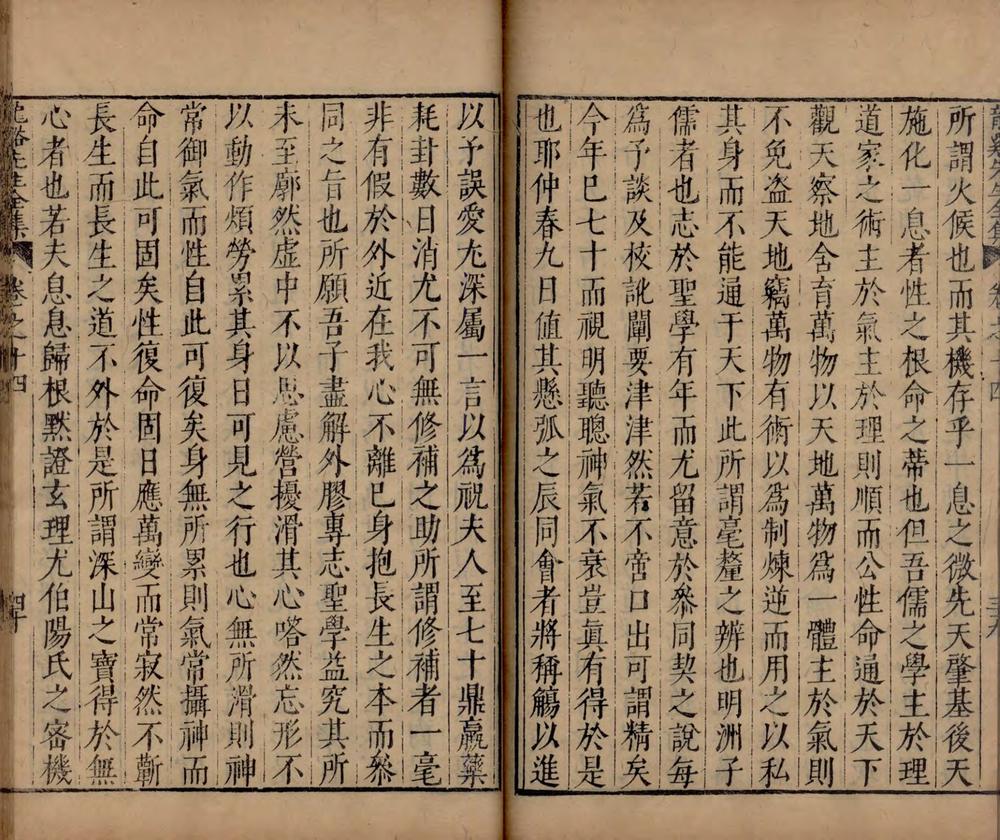 所謂火候也而其機存乎一息之微先天肇基後天
施化一息者性之根命之蒂也但吾儒之學主於理
道家之術主於氣主於理則順而公性命通於天下
觀天察地含育萬物以天地萬物爲一體主於氣則
不免盗天地竊萬物有術以爲制煉逆而用之以私
其身而不能通于天下此所謂毫釐之辨也明洲子
儒者也志於聖學有年而尤留意於叅同契之說每
爲予談及校訛闡要津津然若不啻口出可謂精矣
今年巳七十而視明聽聰神氣不衰豈眞有得於是
也耶仲春九日值其懸弧之辰同會者將稱觴以進
以予誤愛尤深屬一言以爲祝夫人至七十鼎羸藥
耗封數日消尤不可無修補之助所謂修補者一毫
非有假於外近在我心不離巳身抱長生之本而叅
同之旨也所願吾子盡解外膠專志聖學益究其所
未至廓然虛中不以思慮營擾滑其心嗒然忘形不
以動作煩勞累其身日可見之行也心無所滑則神
常御氣而性自此可復矣身無所累則氣常攝神而
命自此可固矣性復命固日應萬變而常寂然不蘄
長生而長生之道不外於是所謂深山之寶得於無
心者也若夫息息歸根黙證玄理尤伯陽氏之密機
龍谿先生全集 卷之十四 四十